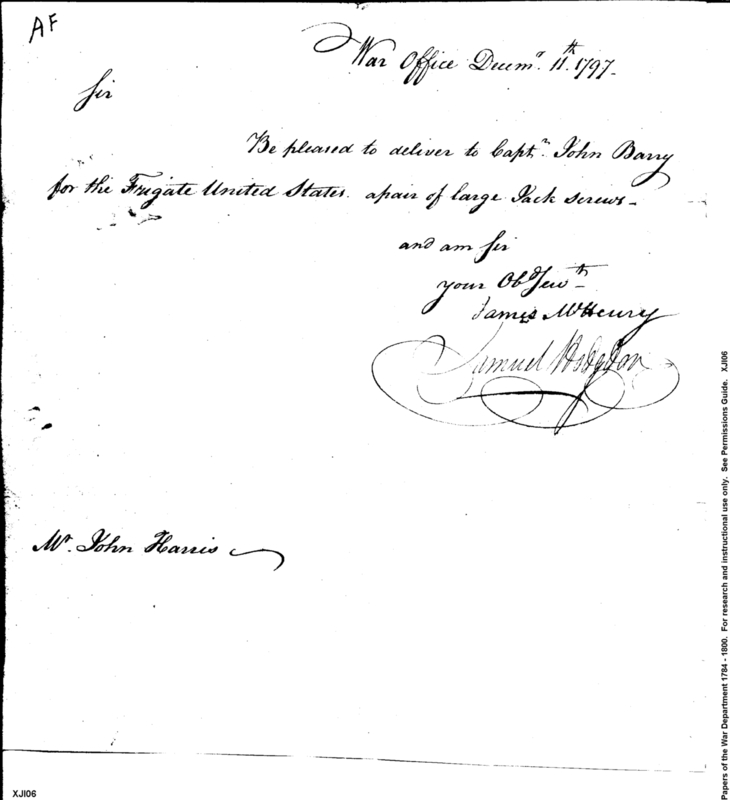 AF
War Office Decemr. 11th. 1797.
Sir
Be pleased to deliver to Captn. John Barry
for the Frigate United States. a pair of large Jack screws.
and am Sir
your Obd Servt
James McHenry
Samuel Hodgdon
Mr. John Harris
XJI06
Papers of the War Department 1784 - 1800. For research and instructional use only. See Permissions Guide. XJI06